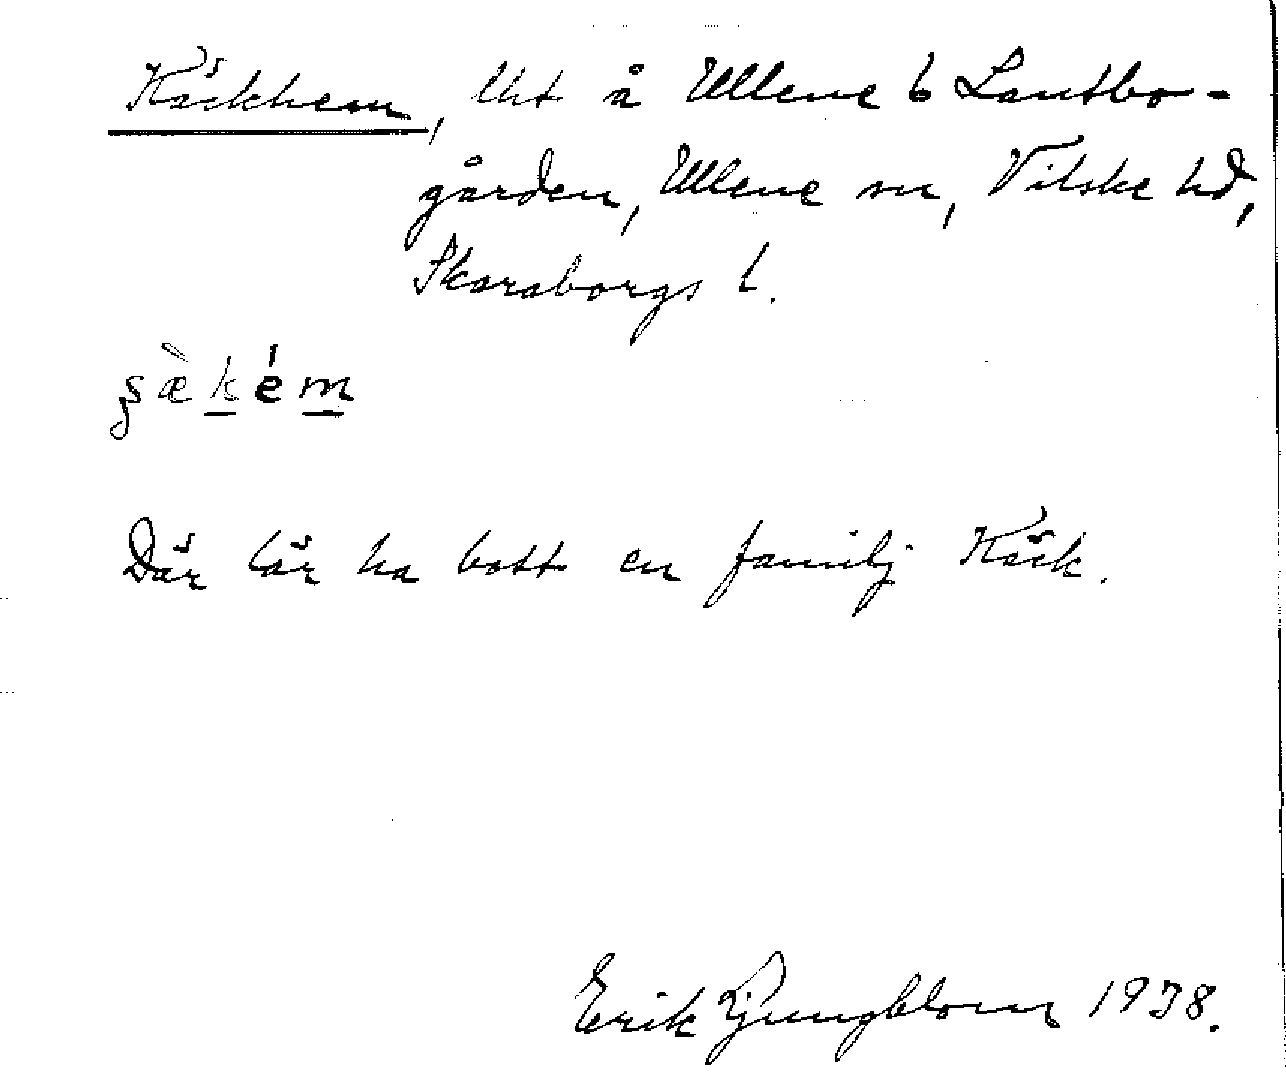 Käckhem, lht å Ullene 6 Lantbo-
gården, Ullene sn, Vilske hd,
Skaraborgs l.
ʂæ̀kém
Där lär ha bott en familj Käck.
Erik Ljungblom 1938.